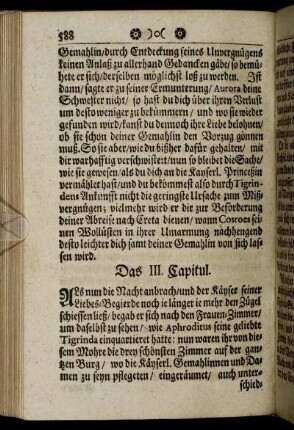 588
Gemahlin/durch Entdeckung seines Unvergnügens
keinen Anlaß zu allerhand Gedancken gäbe/ so bemü-
hete er sich/derselben möglichst loß zu werden. Ist
dann/ sagte er zu seiner Ermunterung/ Aurora deine
Schwester nicht/ so hast du dich über ihren Verlust
um desto weniger zu bekümmern/ und wo sie wieder
gefunden wird/ must du dennoch ihre Liebe belohnen/
ob sie schon deiner Gemahlin den Vorzug gönnen
muß. So sie aber/ wie du bißher dafür gehalten/ mit
dir warhafftig verschwistert/ nun so bleibet die Sache/
wie sie gewesen/ als du dich an die Käyserl. Princeßin
vermählet hast/ und du bekommest also durch Tigrin-
dens Ankunfft nicht die geringste Ursache zum Miß-
vergnügen; vielmehr wird er dir zur Beförderung
deiner Abreise nach Creta dienen/ wann Cosroes sei-
nen Wollüsten in ihrer Umarmung nachhengend
desto leichter dich samt deiner Gemahlin von sich las-
sen wird.
Das III. Capitul.
Als nun die Nacht anbrach/ und der Käyser seiner
Liebes-Begierde noch ie länger ie mehr den Zügel
schiessen ließ/ begab er sich nach den Frauen-Zimmer/
um daselbst zu sehen/ wie Aphroditus seine geliebte
Tigrinda einquartieret hatte: nun waren ihr von die-
sem Mohre die drey schönsten Zimmer auf der gan-
tzen Burg/ wo die Käyserl. Gemahlinnen und Da-
men zu seyn pflegeten/ eingeräumet/ auch unter-
schied-